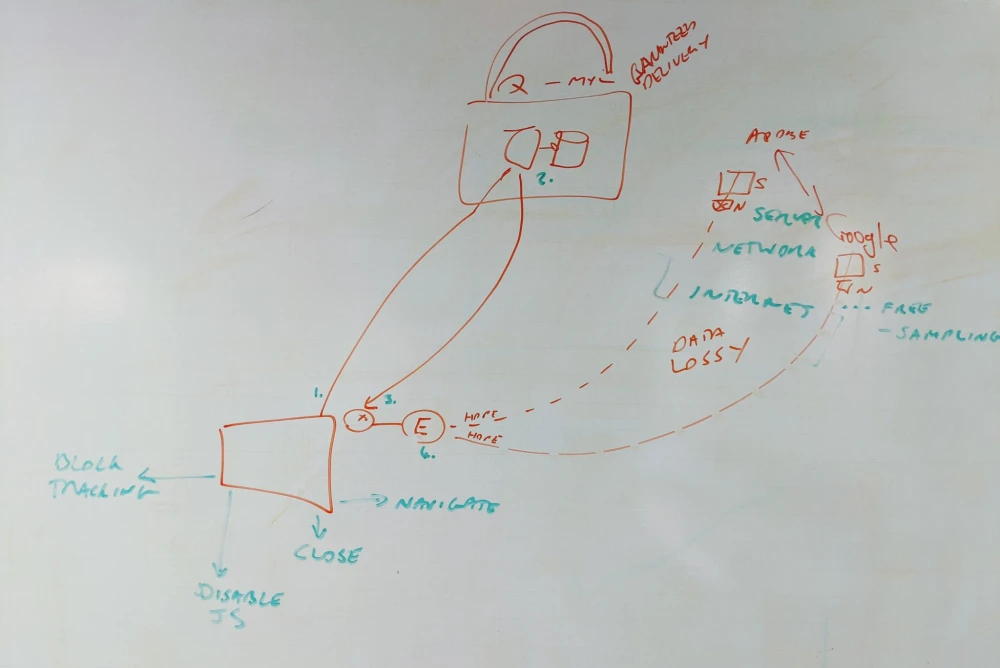 GARANTEED
DELIVERY
2.
ADOBE
S
N
SERVER
Google
NETWORK
S
N
INTERNET
... FREE
- SAMPLING
DATA
LOSSY
1.
3.
X
E
- HOPE -
HOPE
4.
BLOCK
TRACKING
NAVIGATE
CLOSE
DISABLE
JS